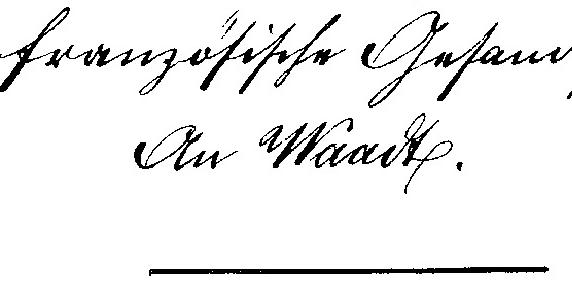 französische Gesand
An Waadt.